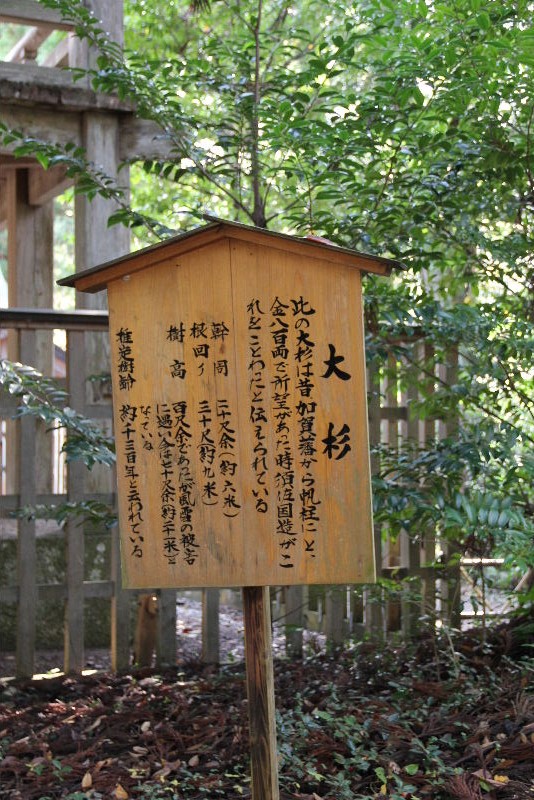 大杉
此の大杉は昔加賀藩から帆柱にと、
金八百両で所望があった時須佐国造がこ
れをことわったと伝えられている
幹周 二十尺余(約六米)
根回り 三十尺(約九米)
樹高 百尺余であったが風雪の被害
に遇い今は七十尺余(約二一米)と
なっている
推定樹齢 約千三百年と云われている